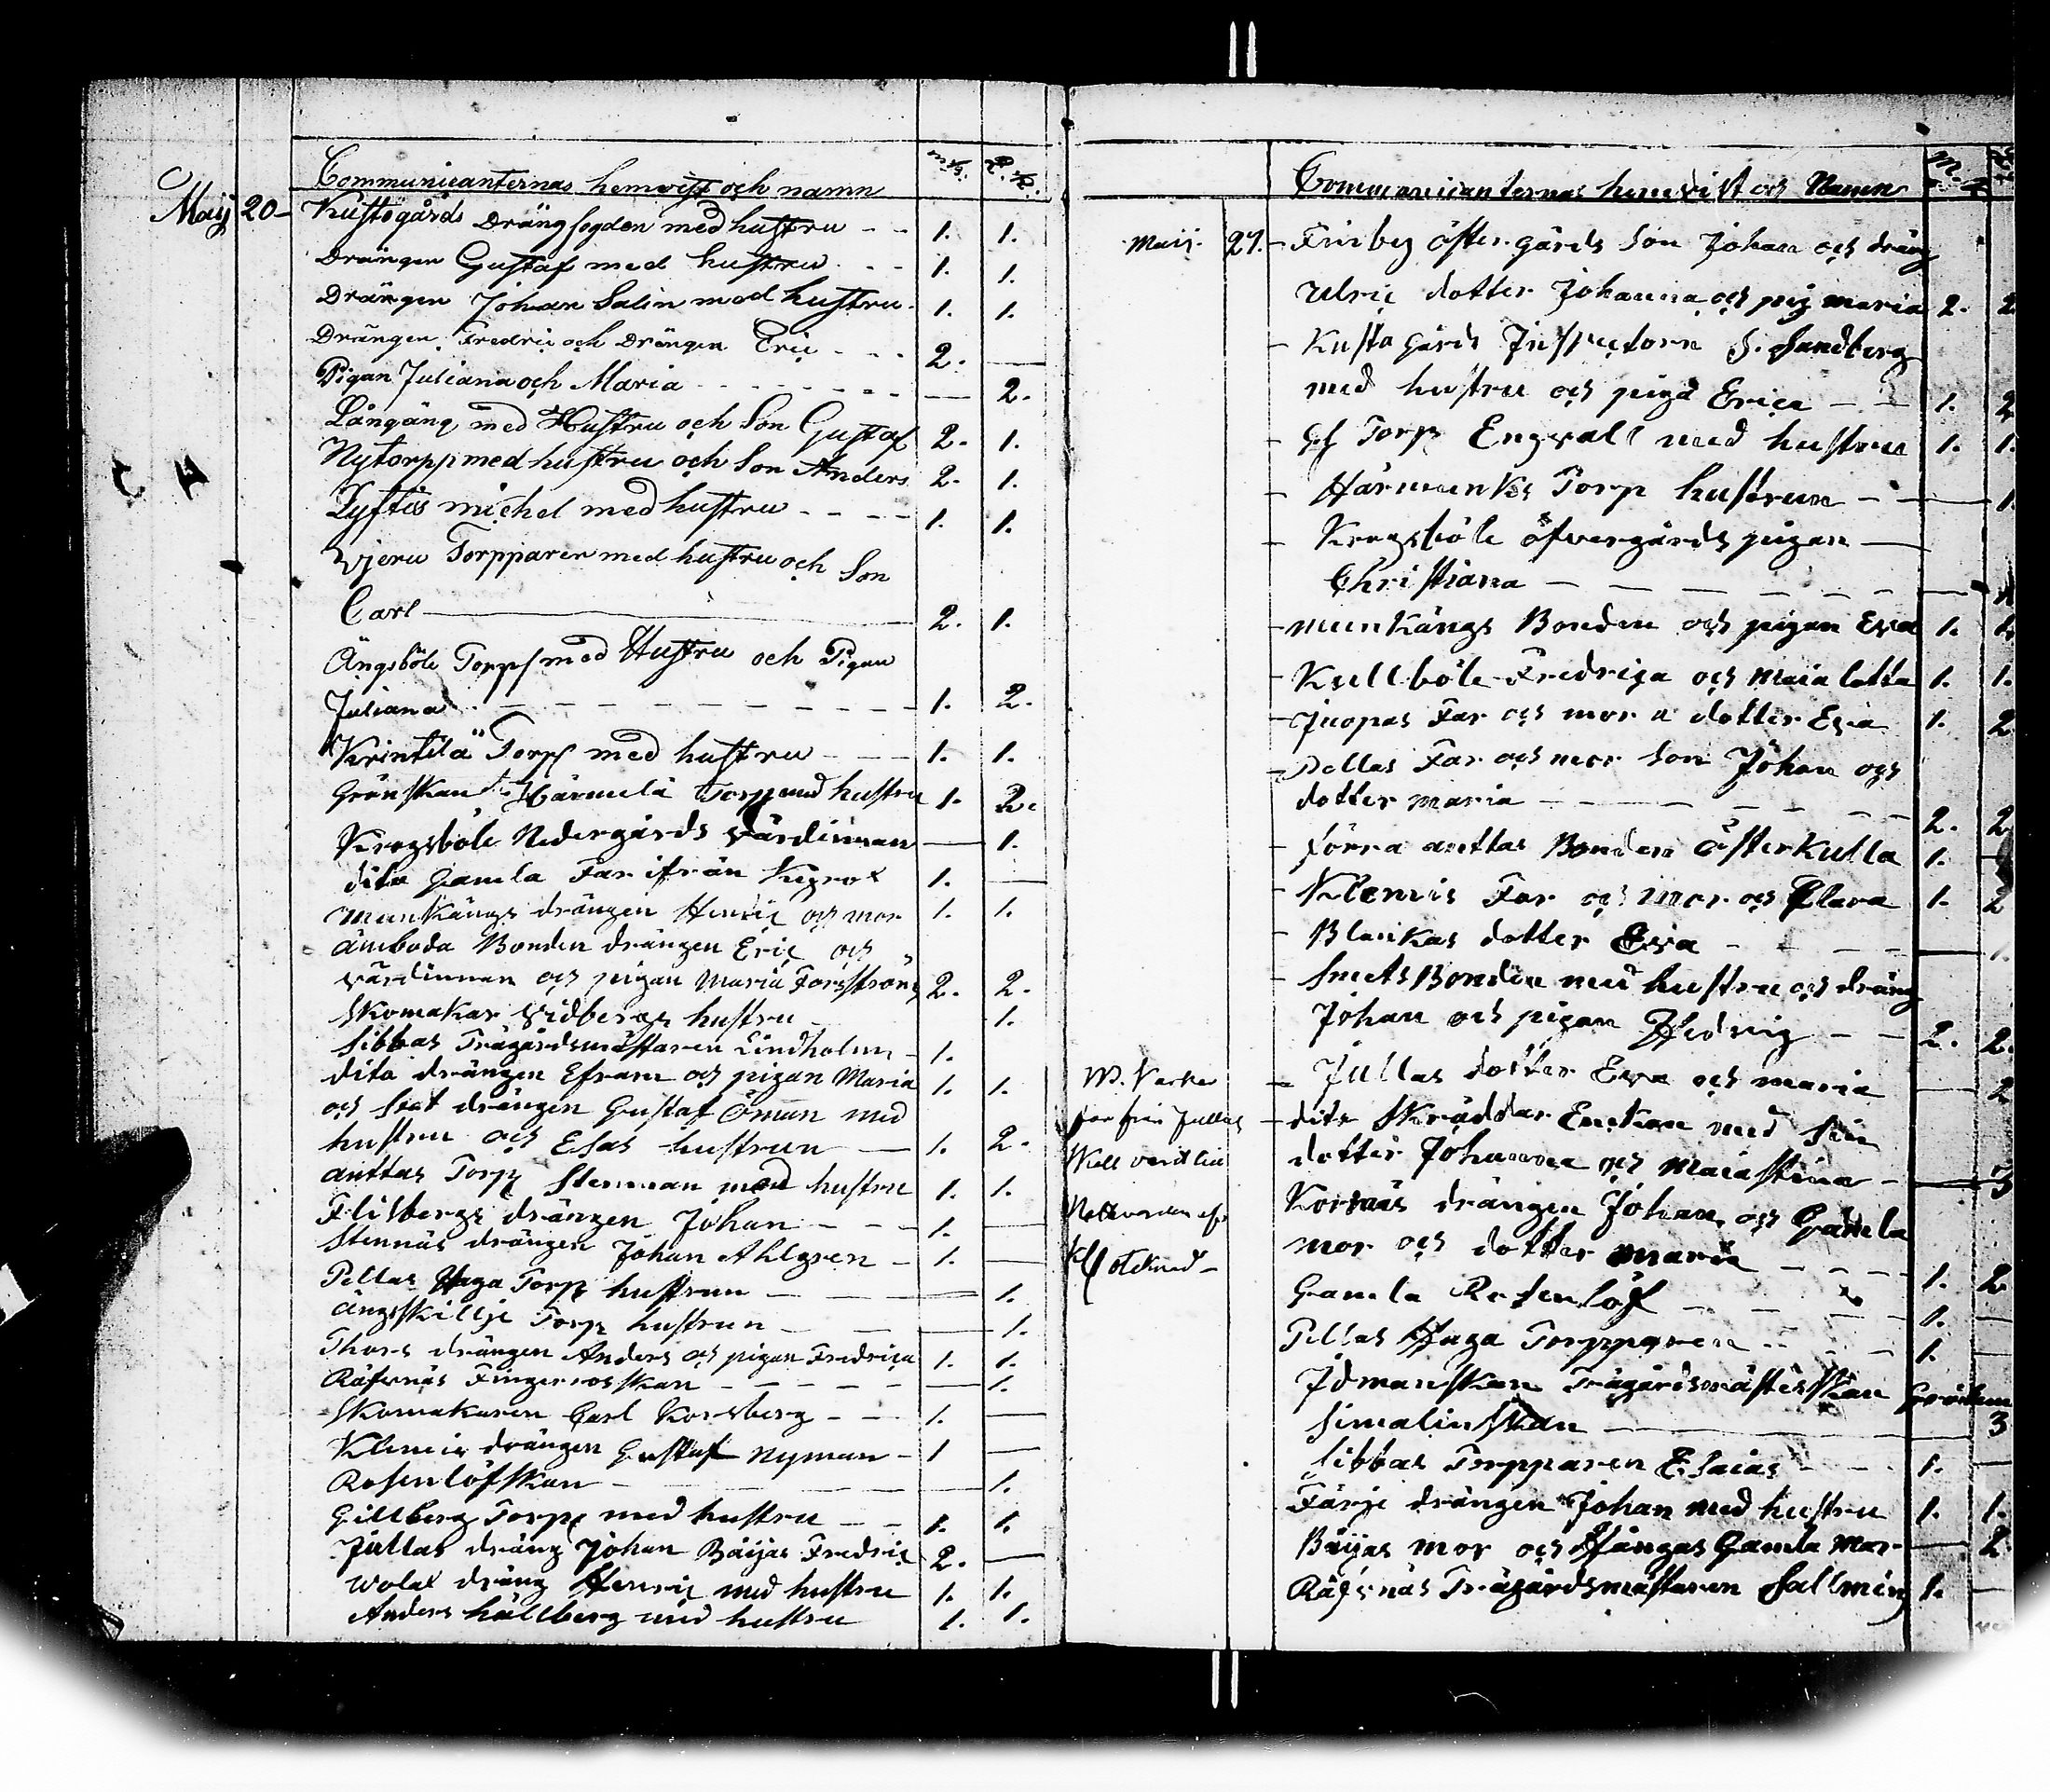 Communicanternas hemvist och namn
Maij 20 - Kustögårds Drängfogden med hustru - - 1. 1.
Drängen Gustaf med hustru - - 1. 1.
Drängen Johan Salin med hustru. 1. 1.
Drängen Fredric och Drängen Eric - - - 2. —
Pigan Juliana och Maria - - - - - — 2.
Långäng med Hustru och Son Gustaf 2. 1.
Nytorpp med hustru och Son Anders 2. 1.
michel med hustru - - - - 1. 1.
Torpparen med hustru och Son
Carl — 2. 1.
Ängsböle Torpp med Hustru och Pigan
Juliana - - - - - - 1. 2.
Krintilä Torp med hustru - - - 1. 1.
Torp med hustru 1. 2.
Krogsböle Nedergårds värdinnan — 1.
dito Gamla Far ifrån 1. —
Munkängs drängen Henric och mor 1. 1.
ämboda Bonden drängen Eric och
värdinnan och pigan Maria Forsström 2. 2.
Skomakar Widbergs hustru 1.
Sibbas Trägårdsmästaren Lindholm - 1.
dito drängen Efram och pigan Maria 1. 1.
och drängen Gustaf Öman med
hustru och Esas hustrun — 1. 2.
anttas Torp Stenman med hustru 1. 1.
Flisbergs drängen Johan - - - 1.
Stennäs drängen Johan Ahlgren - 1. —
Pellas Haga Torp hustrun — — 1.
ängsskillje Torp hustrun — — 1.
Thors drängen Anders och pigan Fredrica 1. 1.
Räfsnäs Fingerroosskan - - - - - — 1.
Skomakaren Carl Korsberg - - 1. —
Klemis drängen Gustaf Nyman - 1 —
Rosenlöfskan — 1.
Gillberg Torp med hustru — — 1. 1.
Jullas dräng Johan Böijas Fredric 2. —
dräng Henric med hustru 1. 1.
Anders hällberg med hustru 1. 1.
Communicanternas hemvist och Namn
Maij. 27. - Finby östergårds Son Johan och dräng
Ulric dotter Johanna och pig maria 2. 2
- Kusto gårds Inspectorn S. Sandberg
med hustru och piga Erica — — 1. 2
- Torp Engvall med hustru 1. 1.
- Härmunks Torp hustrun - — 1.
- Krogsböle öfvergårds pigan —
Christiana — — — — — —
- munkängs Bonden och pigan Eva 1. 1.
- Kullböle Fredrica och maia lotta 1. 1.
- Jacopas Far och mor o dotter Eva 1. 2
- Pellas Far och mor Son Johan och
dotter maria — — — — — 2. 2
- Norra anttas Bonden Österkulla 1. —
- Klemis Far och mor och Clara 1. 2
- Blankas dotter Eva - — — — 1.
- Smeds Bonden med hustru och dräng
Johan och pigan Hedvig — — 2. 2.
- Jullas dotter Eva och maria 2
- dito Skräddar Enckan med sin
dotter Johanna och maiastina — — 3
Kornäs drängen Johan och Gamla
mor och dotter maria - - - - 1. 2
Gamla Rosenlöf — — 1. —
Pellas Haga Torpparen - - - - 1. —
Idmanskan Trägårdsmästerskan
Simalinskan — 3
Sibbas Torpparen Esaias - - - 1. —
Färje drängen Johan med hustru 1. 1.
Böijas mor och Hängas Gamla mor — 2
Räfsnäs Trägårdsmästaren Sallmén 1. —